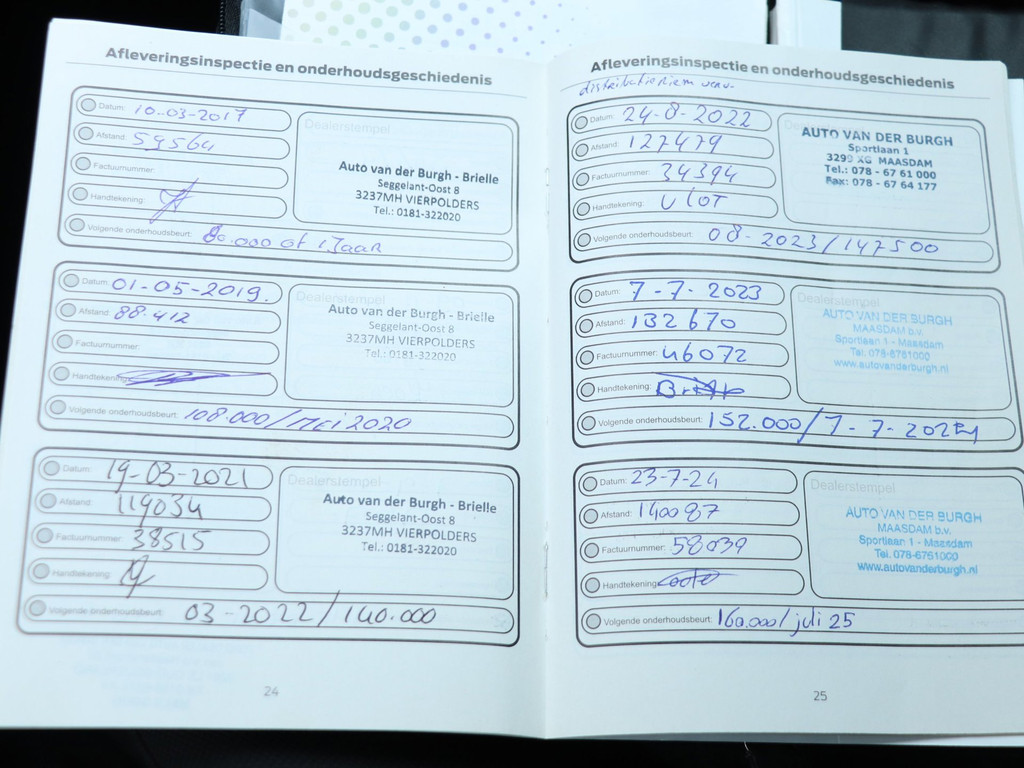 Afleveringsinspectie en onderhoudsgeschiedenis
Datum: 10-03-2017
Afstand: 59564
Factuurnummer:
Handtekening:
Volgende onderhoudsbeurt: 80.000 of 1 Jaar
Dealerstempel
Auto van der Burgh - Brielle
Seggelant-Oost 8
3237MH VIERPOLDERS
Tel.: 0181-322020
Datum: 01-05-2019.
Afstand: 88.412
Factuurnummer:
Handtekening:
Volgende onderhoudsbeurt: 108.000/Mei 2020
Dealerstempel
Auto van der Burgh - Brielle
Seggelant-Oost 8
3237MH VIERPOLDERS
Tel.: 0181-322020
Datum: 19-03-2021
Afstand: 119034
Factuurnummer: 38515
Handtekening:
Volgende onderhoudsbeurt: 03-2022/140.000
Dealerstempel
Auto van der Burgh - Brielle
Seggelant-Oost 8
3237MH VIERPOLDERS
Tel.: 0181-322020
24
Afleveringsinspectie en onderhoudsgeschiedenis
distributieriem verv.
Datum: 24-8-2022
Afstand: 127479
Factuurnummer: 34394
Handtekening: Vlot
Volgende onderhoudsbeurt: 08-2023/147500
Dealerstempel
AUTO VAN DER BURGH
Sportlaan 1
3299 XG MAASDAM
Tel.: 078 - 67 61 000
Fax: 078 - 67 64 177
Datum: 7-7-2023
Afstand: 132670
Factuurnummer: 46072
Handtekening:
Volgende onderhoudsbeurt: 152.000/7-7-2024
Dealerstempel
AUTO VAN DER BURGH
MAASDAM b.v.
Sportlaan 1 - Maasdam
Tel. 078-6761000
www.autovanderburgh.nl
Datum: 23-7-24
Afstand: 140087
Factuurnummer: 58039
Handtekening:
Volgende onderhoudsbeurt: 160.000/juli 25
Dealerstempel
AUTO VAN DER BURGH
MAASDAM b.v.
Sportlaan 1 - Maasdam
Tel. 078-6761000
www.autovanderburgh.nl
25